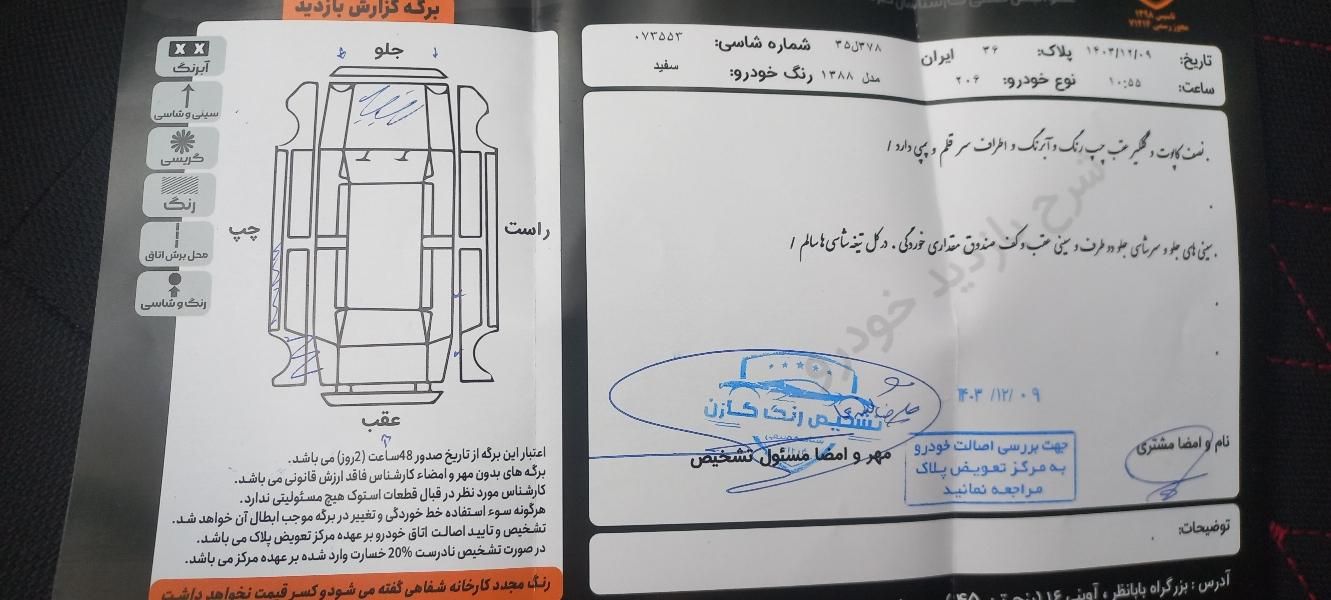 برگه گزارش بازدید
تاسیس ۱۳۹۸
تاریخ: ۱۴۰۳/۱۲/۰۹ پلاک: ۳۶ ایران ۳۷۸ل۳۵ شماره شاسی: ۰۷۳۵۵۳
ساعت: ۱۰:۵۵ نوع خودرو: ۲۰۶ مدل ۱۳۸۸ رنگ خودرو: سفید
. نصف کاپوت و گلگیر عقب چپ رنگ و آبرنگ و اطراف سر قلم و پیپی دارد /
. سینی های جلو و سرشاسی جلو دو طرف و سینی عقب و کف صندوق مقداری خوردگی . در کل تیغه شاسی ها سالم /
شرح بازدید خودرو
تشخیص رنگ گازن
۱۴۰۳/۱۲/۰۹
جهت بررسی اصالت خودرو
به مرکز تعویض پلاک
مراجعه نمائید
نام و امضا مشتری
مهر و امضا مسئول تشخیص
توضیحات:
آدرس : بزرگراه بابانظر ، آوینی ۱۶
X X
آبرنگ
سینی و شاسی
گریسی
رنگ
محل برش اتاق
رنگ و شاسی
جلو
چپ
راست
عقب
اعتبار این برگه از تاریخ صدور 48ساعت (2روز) می باشد.
برگه های بدون مهر و امضاء کارشناس فاقد ارزش قانونی می باشد.
کارشناس مورد نظر در قبال قطعات استوک هیچ مسئولیتی ندارد.
هرگونه سوء استفاده خط خوردگی و تغییر در برگه موجب ابطال آن خواهد شد.
تشخیص و تایید اصالت اتاق خودرو بر عهده مرکز تعویض پلاک می باشد.
در صورت تشخیص نادرست 20% خسارت وارد شده بر عهده مرکز می باشد.
رنگ مجدد کارخانه شفاهی گفته می شود و کسر قیمت نخواهد داشت